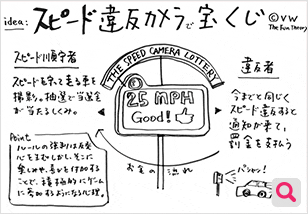 idea: スピード違反カメラで宝くじ
©VW
The Fun Theory
スピード順守者
スピードを守って走る車を
撮影。抽選で当選金
が当たるしくみ。
THE SPEED CAMERA LOTTERY
25 MPH
Good!
違反者
今までと同じく
スピード違反すると
通知が来て、
罰金を支払う
Point
ルールの強制は反発
心を生む。しかし、そこに
楽しみや、喜びを付加する
ことで、積極的にゲーム
に参加するようになる心理。
お金の流れ
パシャッ!